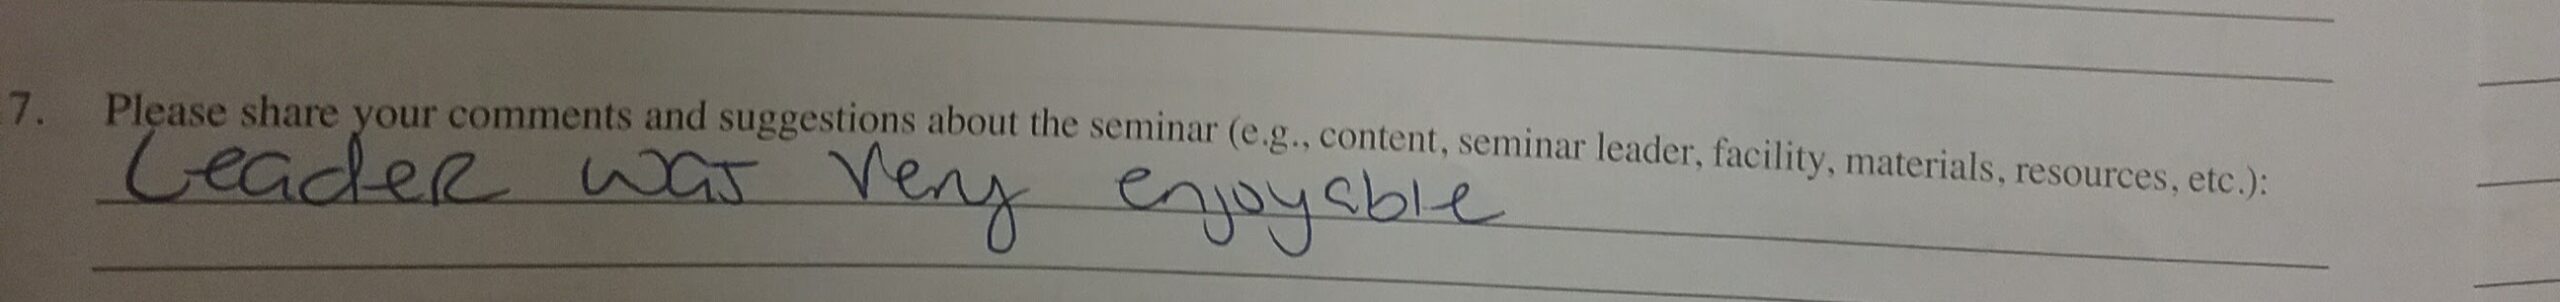 7. Please share your comments and suggestions about the seminar (e.g., content, seminar leader, facility, materials, resources, etc.):
Leader was very enjoyable